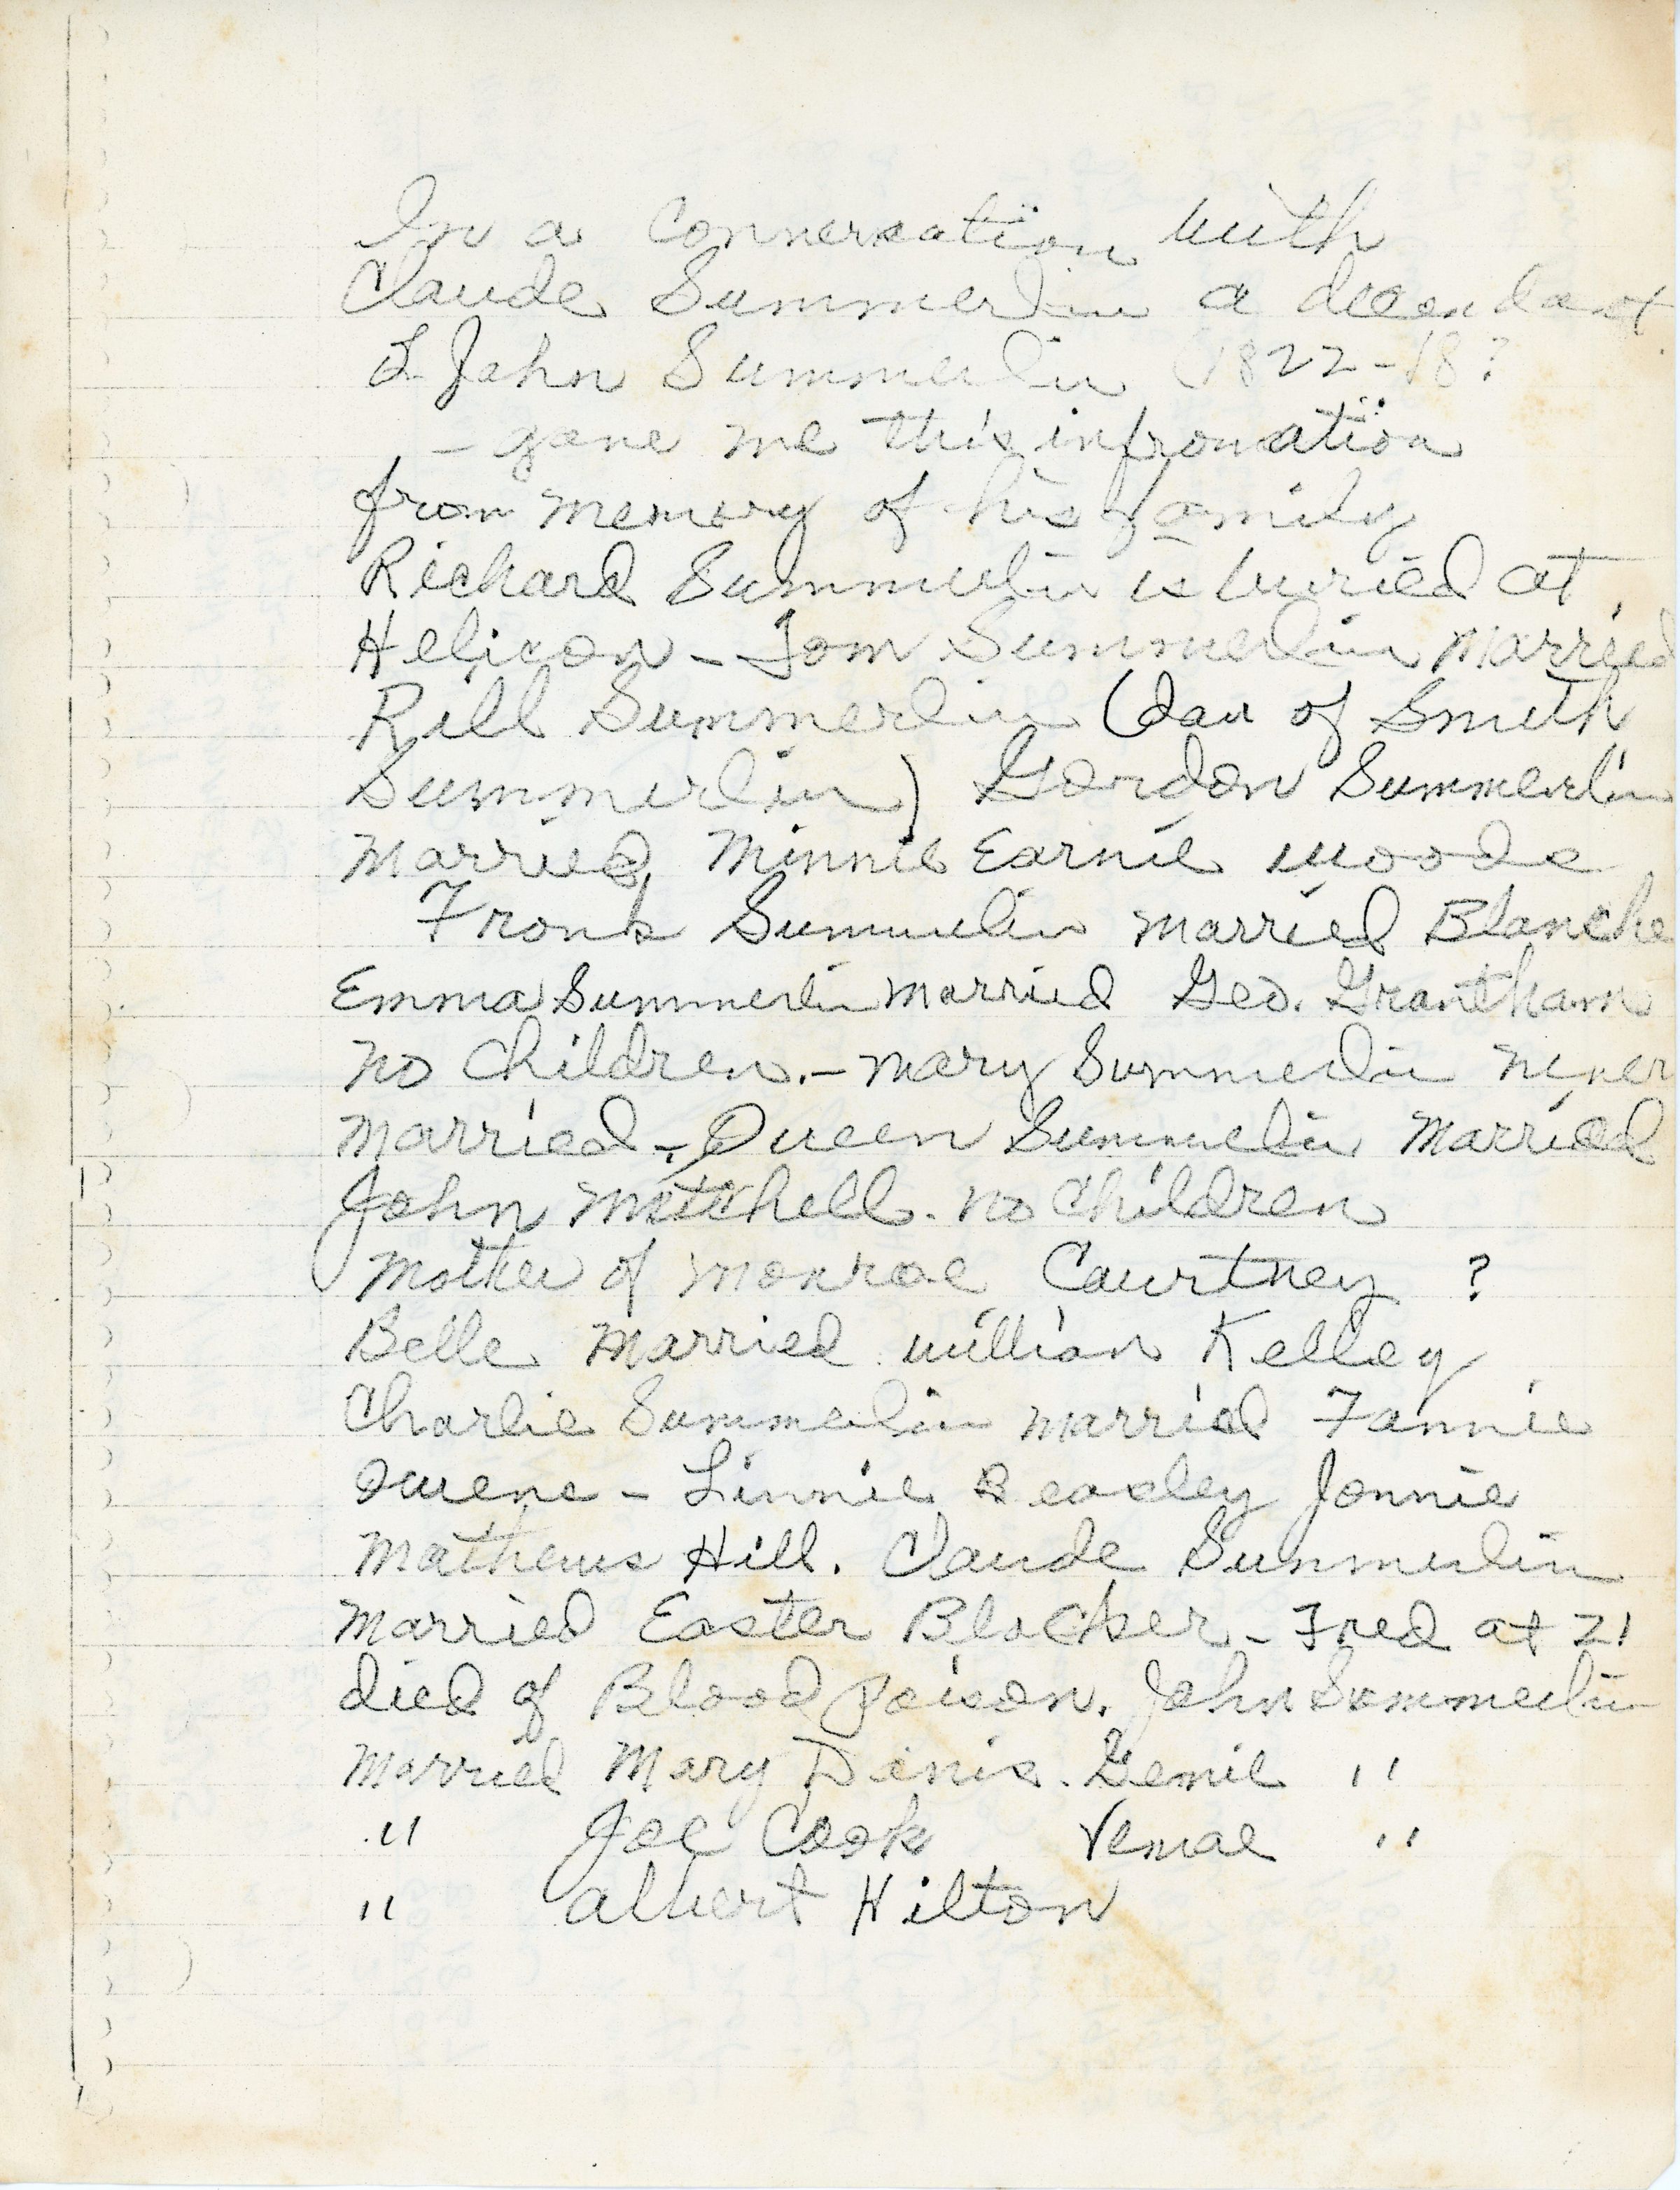 In a Conversation with
Claude Summerlin a decendant
John Summerlin (1822-18?
- gave me this infromation
from memory of his family
Richard Summerlin is buried at
Helicon - Tom Summerlin Married
Rill Summerlin (dau of Smith
Summerlin) Gordon Summerlin
Married Minnie Earnie Woods
Frank Summerlin married Blanche
Emma Summerlin married Geo. Grantham
no Children. - Mary Summerlin never
married - Queen Summerlin Married
John Mitchell. no Children
Mother of Monroe Courtney ?
Belle Married William Kelley
Charlie Summerlin married Fannie
Owens - Linnie Beasley Jonnie
Mathews Hill. Claude Summerlin
Married Easter Blocker - Fred at 21
died of Blood Poison. John Summerlin
Married Mary Davis. "
" Joe Cook "
" Albert Hilton